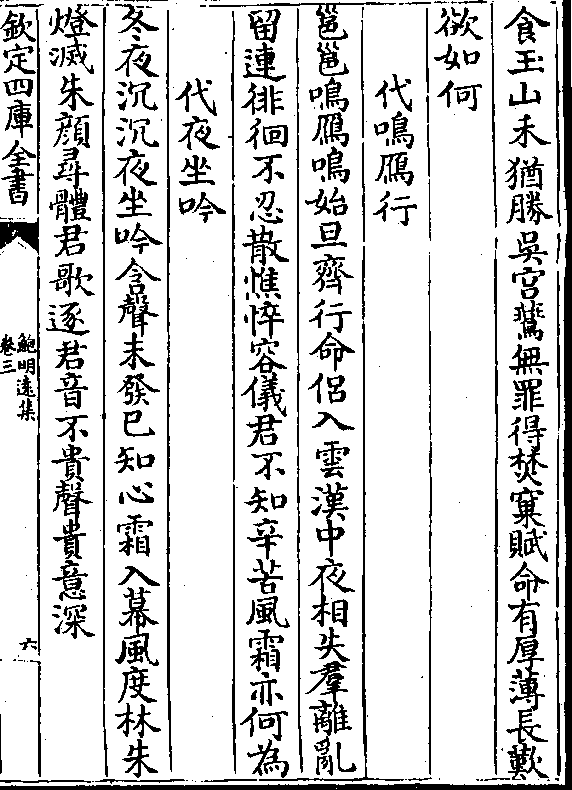 食玉山禾猶勝吳宮鷰無罪得焚窠賦命有厚薄長歎
欲如何
代鳴鴈行
邕邕鳴鴈鳴始旦齊行命侶入雲漢中夜相失羣離亂
留連徘徊不忍散憔悴容儀君不知辛苦風霜亦何為
代夜坐吟
冬夜沉沉夜坐吟含聲未發已知心霜入幕風度林朱
燈滅朱顔尋體君歌逐君音不貴聲貴意深
欽定四庫全書
鮑明遠集
卷三
六